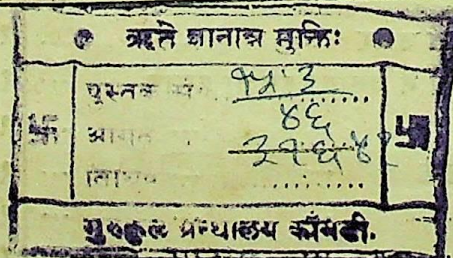 ऋते ज्ञानान्न मुक्तिः
पुस्तक सं. १५.३
४६
आगत ३१६४२
गुरुकुल ग्रन्थालय काँगड़ी.